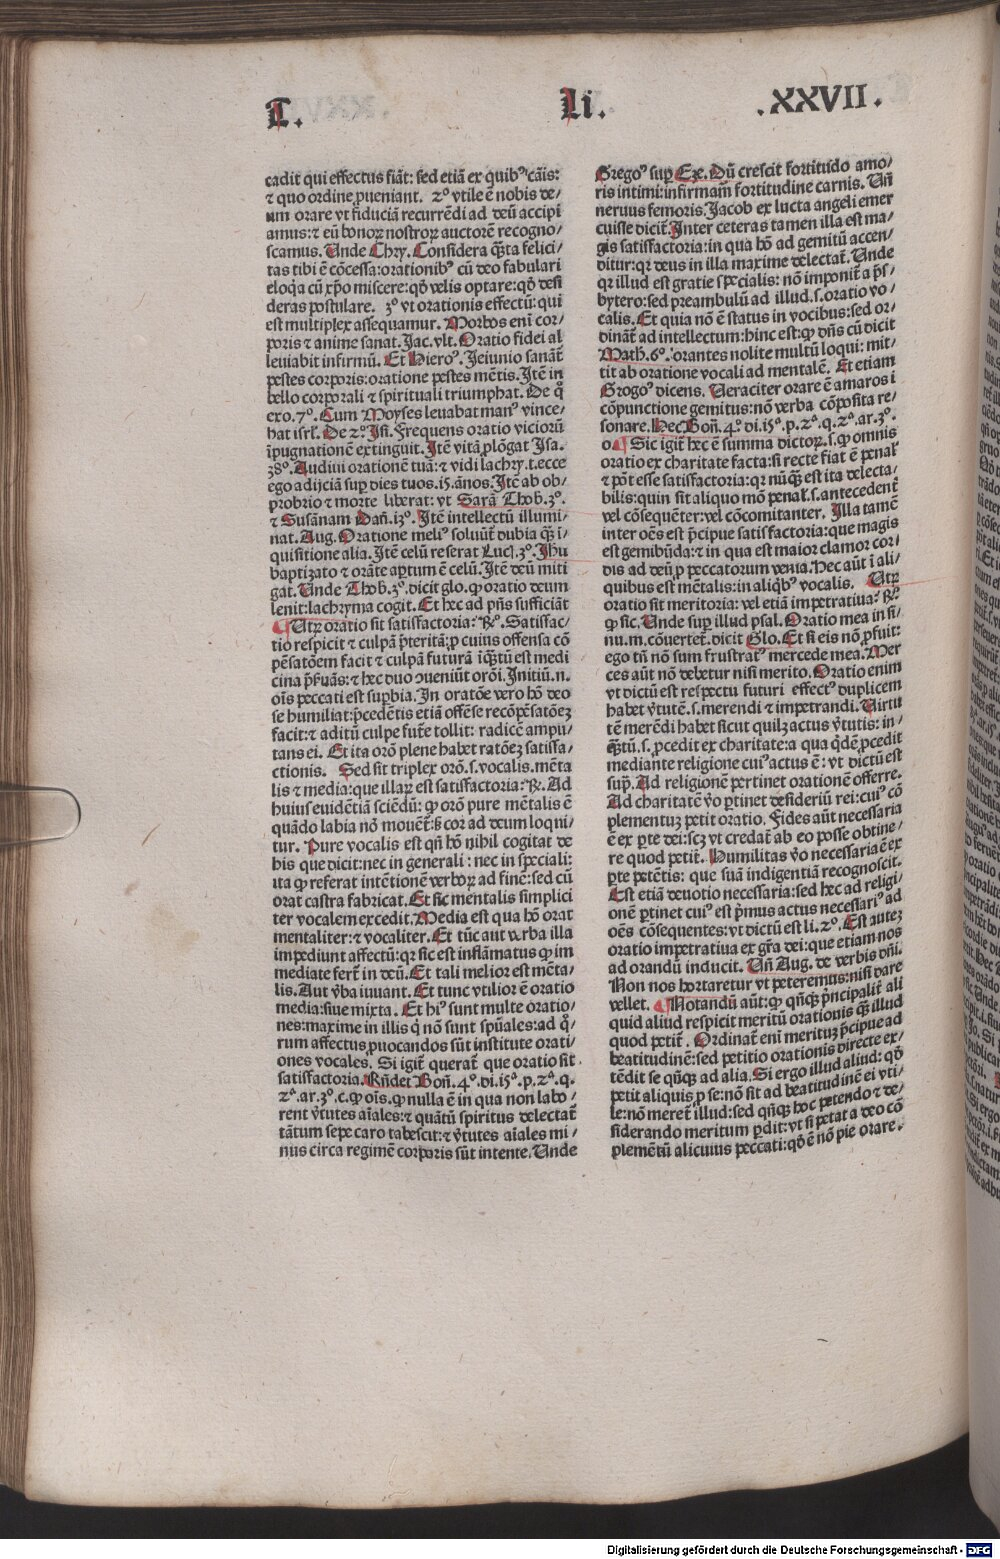 T. Li. .XXVII.
cadit qui effectus fiāt: sed etiā ex quibꝰ cāis:
⁊ quo ordine ꝓueniant. 2º vtile ē nobis de-
um orare vt fiduciā recurrēdi ad deū accipi
amus: ⁊ eū bonoꝝ nostroꝝ auctorē recogno/
scamus. Unde Chry. Considera q̄ta felici/
tas tibi ē cōcessa: orationibꝰ cū deo fabulari
eloq̄a cū xp̄o miscere: qd̄ velis optare: qd̄ desi
deras postulare. 3º vt orationis effectū: qui
est multiplex assequamur. Morbos eni cor/
poris ⁊ anime sanat. Jac. vlt. Oratio fidei al
leuiabit infirmū. Et Hieroꝰ. Jeiunio sanāt̄
pestes corporis: oratione pestes mētis. Jtē in
bello corporali ⁊ spirituali triumphat. De q̊
exo. 7º. Cum Moyses leuabat manꝰ vince/
bat isrl̄. De 2º. Jsi. Frequens oratio vicioru̅
īpugnationē extinguit. Jtē vitā ꝓlōgat Jsa.
38º. Audiui orationē tuā: ⁊ vidi lachry. t. ecce
ego adijciā suꝑ dies tuos. i5. ānos. Jtē ab ob/
probrio ⁊ morte liberat: vt Sarā Thob. 3º.
⁊ Susānam Dan̄. i3º. Jtē intellectū illumi/
nat. Aug. Oratione meliꝰ soluūt̄ dubia q̄ i/
quisitione alia. Jtē celū reserat Luc̄. 3º. Jhu
baptizato ⁊ orāte aꝑtum ē celū. Jtē deū miti
gat. Unde Thob. 3º. dicit glo. ꝙ oratio deum
lenit: lachryma cogit. Et hec ad pn̄s sufficiāt
¶ Utꝝ oratio sit satisfactoria: ℞. Satisfac/
tio respicit ⁊ culpā p̄teritā: ꝓ cuius offensa cō
pēsatōem facit ⁊ culpā futurā iq̄tū est medi
cina p̄seruās: ⁊ hec duo ↄueniūt orōi. Jnitiū. n.
oīs peccati est suꝑbia. Jn oratōe vero hō deo
se humiliat: p̄cedētis etiā offēse recōpēsatōeꝫ
facit: ⁊ aditū culpe fut̄e tollit: radicē ampu/
tans ei. Et ita orō plene habet ratōeꝫ satisfa/
ctionis. Sed sit triplex orō. s. vocalis. mēta
lis ⁊ media: que illaꝝ est satisfactoria: ℞. Ad
huius euidētiā sciēdū: ꝙ orō pure mētalis ē
quādo labia nō mouēt̄: sꝫ cor ad deum loqui/
tur. Pure vocalis est qn̄ hō nihil cogitat de
his que dicit: nec in generali: nec in speciali:
ita ꝙ referat intētionē verboꝝ ad finē: sed cū
orat castra fabricat. Et sic mentalis simplici
ter vocalem excedit. Media est qua hō orat
mentaliter: ⁊ vocaliter. Et tūc aut verba illa
impediunt affectū: qꝛ sic est inflāmatus ꝙ im
mediate fert̄ in deū. Et tali melior est mēta/
lis. Aut v̄ba iuuant. Et tunc vtilior ē oratio
media: siue mixta. Et hiꝰ sunt multe oratio/
nes: maxime in illis q̇ nō sunt spūales: ad q̇/
rum affectus ꝓuocandos sūt institute orati/
ones vocales. Si igit̄ querat̄ que oratio sit.
satisfactoria. Rn̄det Bon̄. 4º. di. i5ª. p. 2ª. q.
2ª. ar. 3º. c. ꝙ oīs. ꝙ nulla ē in qua non labo/
rent v̄tutes aīales: ⁊ quātū spiritus delectat̄
tātum sepe caro tabescit: ⁊ v̄tutes aīales mi/
nus circa regimē corporis sūt intente. Unde
Gregoꝰ suꝑ Ex. Dū crescit fortitudo amo/
ris intimi: infirmat̄ fortitudine carnis. Un̄
neruus femoris. Jacob ex lucta angeli emer
cuisse dicit̄. Jnter ceteras tamen illa est ma/
gis satisfactoria: in qua hō ad gemitū accen/
ditur: qꝛ deus in illa maxime delectat̄. Unde
qꝛ illud est gratie specialis: nō imponit̄ a p̄s/
bytero: sed preambulū ad illud. s. oratio vo/
calis. Et quia nō ē status in vocibus: sed or/
dinat̄ ad intellectum: hinc est: ꝙ dn̄s cū dicit
Math. 6º. orantes nolite multū loqui: mit/
tit ab oratione vocali ad mentalē. Et etiam
Grogoꝰ dicens. Ueraciter orare ē amaros i
cōpunctione gemitus: nō verba cōposita re/
sonare. Hec Bon̄. 4º. di. i5ª. p. 2ª. q. 2ª. ar. 3º.
o. ¶ Sic igit̄ hec ē summa dictoꝝ. s. ꝙ omnis
oratio ex charitate facta: si recte fiat ē penal̄
⁊ pōt esse satisfactoria: qꝛ nūq̄ est ita delecta/
bilis: quin sit aliquo mō penal̄. s. antecedent̄
vel cōsequēter: vel cōcomitanter. Jlla tamē
inter oēs est p̄cipue satisfactoria: que magis
est gemibūda: ⁊ in qua est maior clamor cor/
dis ad deū ꝓ peccatorum venia. Hec aūt ī ali/
quibus est mētalis: in aliq̇bꝰ vocalis. Utꝝ
oratio sit meritoria: vel etiā impetratiua: ℞.
ꝙ sic. Unde suꝑ illud psal. Oratio mea in si/
nu. m. cōuertet̄. dicit Glo. Et si eis nō ꝓfuit:
ego tn̄ nō sum frustratꝰ mercede mea. Mer
ces aūt nō debetur nisi merito. Oratio enim
vt dictū est respectu futuri effectꝰ duplicem
habet v̄tutē. s. merendi ⁊ impetrandi. Uirtu
tē merēdi habet sicut quilꝫ actus v̄tutis: in/
q̄tū. s. ꝓcedit ex charitate: a qua q̇dē ꝓcedit
mediante religione cuiꝰ actus ē: vt dictū est
suꝑ. Ad religionē pertinet orationē offerre.
Ad charitatē v̄o ꝑtinet desideriū rei: cuiꝰ cō
plementuꝫ petit oratio. Fides aūt necessaria
ē ex ꝑte dei: scꝫ vt credat̄ ab eo posse obtine/
re quod petit̄. Humilitas v̄o necessaria ē ex
ꝑte petētis: que suā indigentiā recognoscit.
Est etiā deuotio necessaria: sed hec ad religi/
onē ꝑtinet cuiꝰ est p̄mus actus necessariꝰ ad
oēs cōsequentes: vt dictū est li. 2º. Est auteꝫ
oratio impetratiua ex gr̄a dei: que etiam nos
ad orandū inducit. Un̄ Aug. de verbis dn̄i.
Non nos hortaretur vt peteremus: nisi dare
vellet. ¶ Notandū aūt: ꝙ qn̄qꝫ p̄ncipalit̄ ali
quid aliud respicit meritū orationis q̄ illud
quod petit̄. Ordinat̄ eni merituꝫ p̄cipue ad
beatitudinē: sed petitio orationis directe ex/
tēdit se qn̄qꝫ ad alia. Si ergo illud aliud: qd̄
petit aliquis ꝓ se: nō sit ad beatitudinē ei vti/
le: nō meret̄ illud: sed qn̄qꝫ hoc petendo ⁊ de/
siderando meritum ꝑdit: vt si petat a deo cō
plemētū alicuius peccati: qd̄ ē nō pie orare.
Digitalisierung gefördert durch die Deutsche Forschungsgemeinschaft - DFG